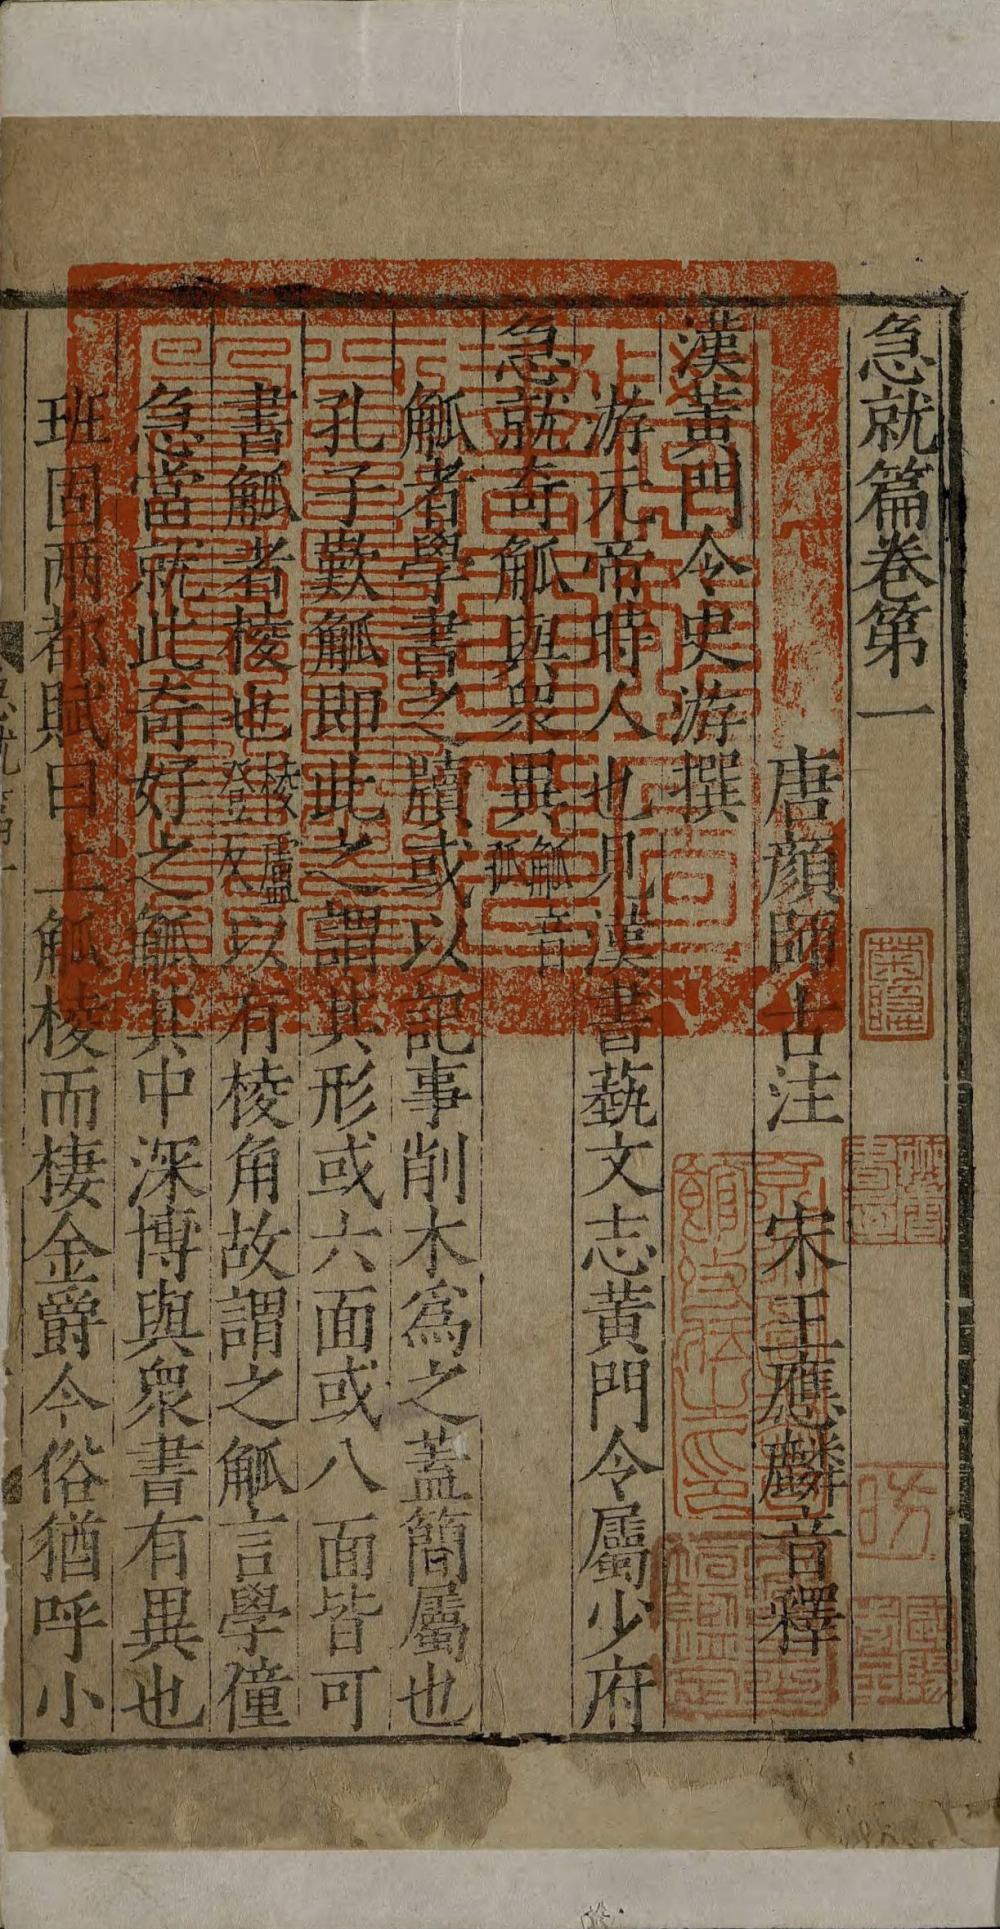 急就篇卷第一
唐顏師古注　宋王應麟音釋
漢黃門令史游撰
游元帝時人也見漢書蓺文志黃門令屬少府
急就奇觚與衆異觚音孤
觚者學書之牘或以記事削木為之蓋簡屬也
孔子歎觚即此之謂其形或六面或八面皆可
書觚者棱也棱盧登反以有棱角故謂之觚言學僮
急當就此奇好之觚其中深博與衆書有異也
班固兩都賦曰上觚棱而棲金爵今俗猶呼小